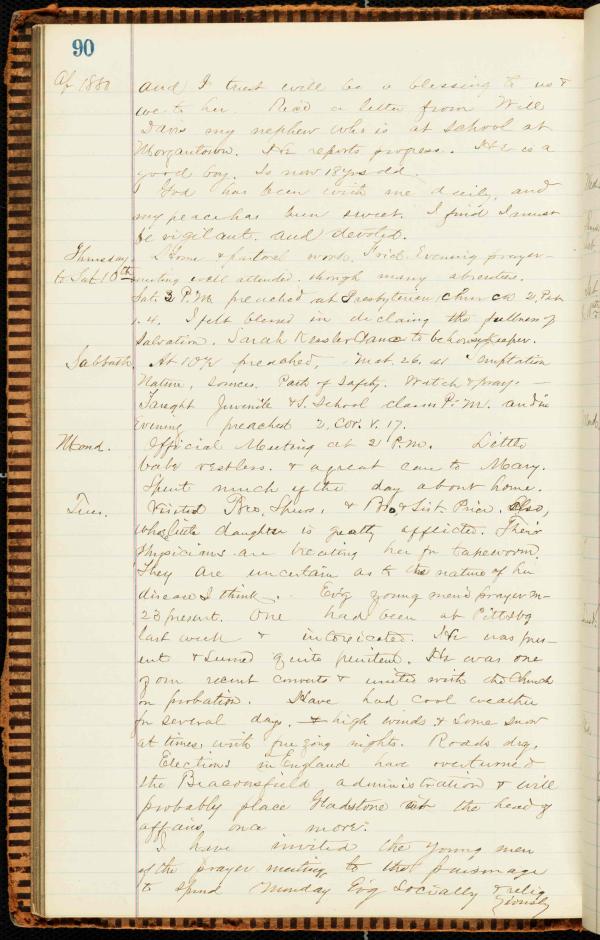 90
Ap 1880 and I trust will be a blessing to us &
we to her. Rec'd a letter from Will
Davis my nephew who is at school at
Morgantown. He reports progress. He is a
good boy. Is now 18 yrs old.
God has been with me daily, and
my peace has been sweet. I find I must
be vigilant and devoted.
Thursday Home & pastoral work. Frid. Evening prayer-
to Sat. 10th meeting well attended, though many absentees.
Sat. 2 P.M. preached at Presbyterian church 2, Pet.
1.4. I felt blessed in declaring the fullness of
Salvation. Sarah came to be housekeeper.
Sabbath. At 10½ preached, Mat. 26, 41 Temptation
Nature, Sources, Path of Safety. Watch & pray. —
Taught Juvenile & S. School classes P.M. and in
Evening preached 2, Cor. V. 17.
Mond. Official Meeting at 2 P.M. Little
babe restless. & a great care to Mary.
Spent much of the day about home.
Tues. Visited Bro. & Bro & Sist. Price. Also,
whose little daughter is greatly afflicted. Their
Physicians are treating her for tapeworm.
They are uncertain as to the nature of her
disease I think. Ev'g young men's prayer m-
23 present. One had been at Pittsbg
last week & intoxicated. He was pres-
ent & seemed quite penitent. He was one
of our recent converts & united with the Church
on probation. Have had cool weather
for several days, & high winds & some snow
at times, with freezing nights. Roads dry.
Elections in England have overturned
the Beaconsfield administration & will
probably place Gladstone at the head of
affairs once more.
I have invited the young men
of the prayer meeting to the parsonage
to spend Monday Ev'g Socially & relig
iously